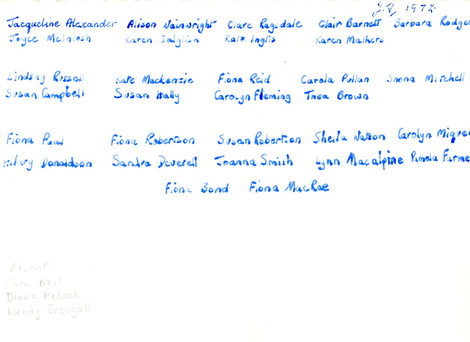 J.V. 1972
Jacqueline Alexander Alison Wainwright Clare Ragsdale Clair Barnett Barbara Rodger
Joyce McIntosh Karen Dalglish Kate Inglis Karen Mathers
Lindsay Russell Kate Mackenzie Fiona Reid Carola Pullan Shona Mitchell
Susan Campbell Susan Hally Carolyn Fleming Thea Brown
Fiona Paul Fiona Robertson Susan Robertson Sheila Watson Carolyn
Hilary Donaldson Sandra Deverell Joanna Smith Lynn Macalpine Pamela Farme
Fiona Bond Fiona MacRae
Absent
Neil
Diane Kellock
Wendy Scougall